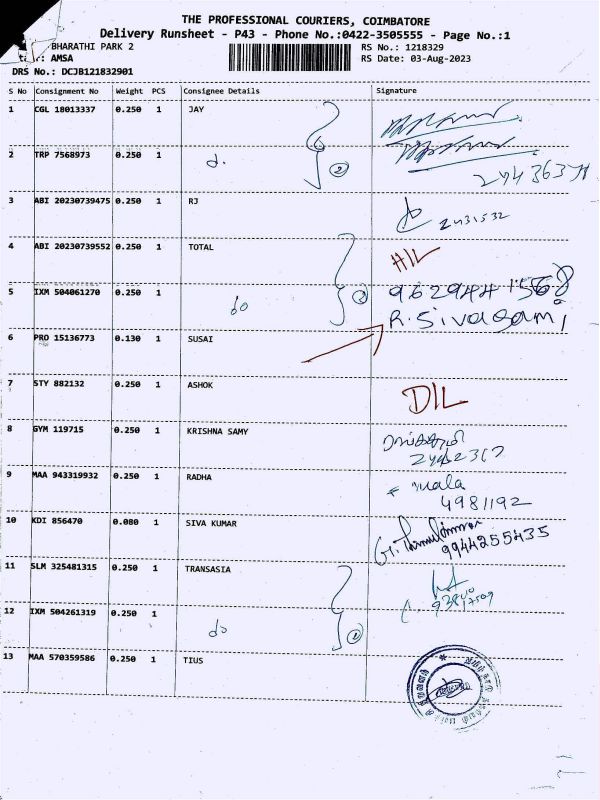 THE PROFESSIONAL COURIERS, COIMBATORE
Delivery Runsheet - P43 - Phone No.:0422-3505555 - Page No.:1
BHARATHI PARK 2
RS No.: 1218329
: AMSA
RS Date: 03-Aug-2023
DRS No.: DCJB121832901
S No Consignment No Weight PCS Consignee Details Signature
1 CGL 18013337 0.250 1 JAY
2 TRP 7568973 0.250 1 d. 2
3 ABI 20230739475 0.250 1 RJ 2431532
4 ABI 20230739552 0.250 1 TOTAL
5 IXM 504061270 0.250 1 do
R. Sivagami
6 PRO 15136773 0.130 1 SUSAI
7 STY 882132 0.250 1 ASHOK DIL
8 GYM 119715 0.250 1 KRISHNA SAMY
9 MAA 943319932 0.250 1 RADHA mala
4981192
10 KDI 856470 0.080 1 SIVA KUMAR
9944255435
11 SLM 325481315 0.250 1 TRANSASIA
12 IXM 504261319 0.250 1 do
13 MAA 570359586 0.250 1 TIUS